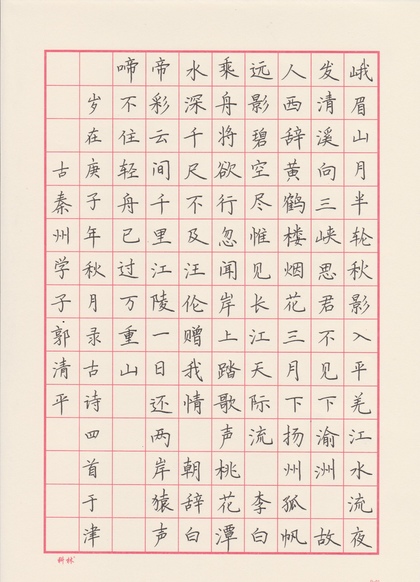 峨眉山月半轮秋影入平羌江水流夜
发清溪向三峡思君不见下渝洲 故
人西辞黄鹤楼烟花三月下扬州孤帆
远影碧空尽惟见长江天际流 李白
乘舟将欲行忽闻岸上踏歌声桃花潭
水深千尺不及汪伦赠我情 朝辞白
帝彩云间千里江陵一日还两岸猿声
啼不住轻舟已过万重山
岁在庚子年秋月录古诗四首于津
古秦州学子郭清平
科林